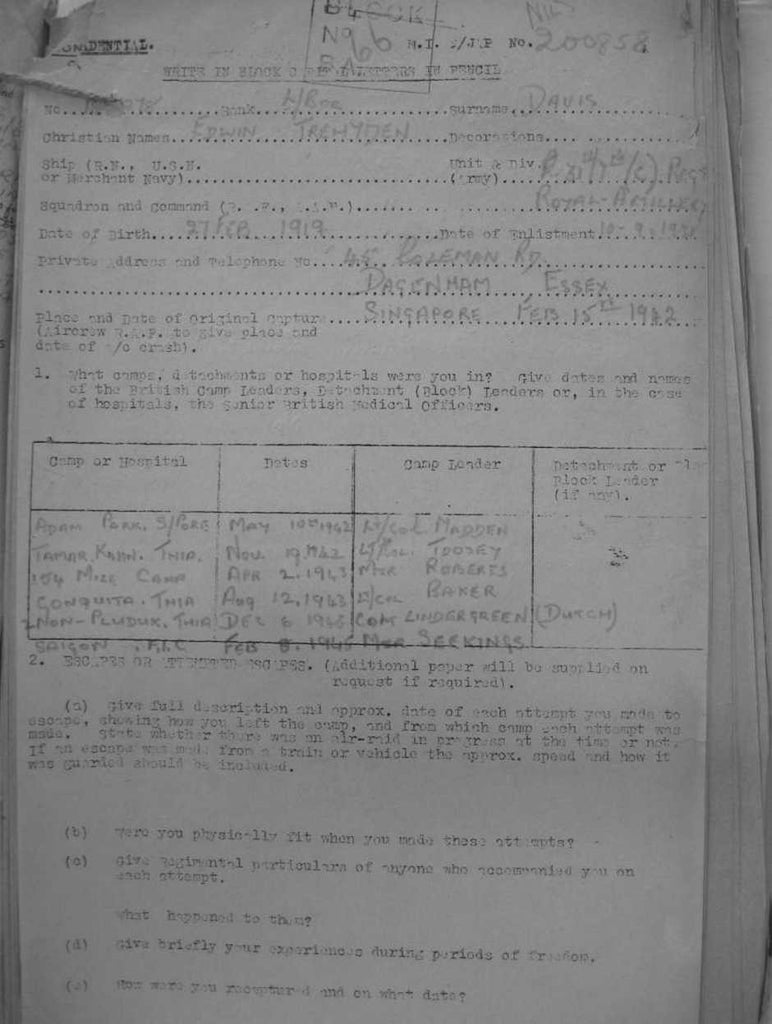 BLOCK NIL
CONFIDENTIAL. No 6 M.I. 9/JAP No. 200858
WRITE IN BLOCK CAPITAL LETTERS IN PENCIL
No. Rank L/BDR Surname DAVIS
Christian Names EDWIN Decorations
Ship (R.N., U.S.N. Unit & Div.
or Merchant Navy) (Army)
Squadron and Command ROYAL ARTILLERY
Date of Birth 27 FEB. 1919 Date of Enlistment
Private Address and Telephone No. 45 COLEMAN RD.
DAGENHAM ESSEX
Place and Date of Original Capture SINGAPORE FEB 15TH 1942
(Aircrew R.A.F. to give place and
date of a/c crash).
1. What camps, detachments or hospitals were you in? Give dates and names
of the British Camp Leaders, Detachment (Block) Leaders or, in the case
of hospitals, the Senior British Medical Officers.
Camp or Hospital Dates Camp Leader Detachment or
Block Leader
(if any).
ADAM PARK. S/PORE MAY 10TH 1942 LT/COL MADDEN
TAMAR KAHN. THIA. NOV. 19. 1942 LT/COL. TOOSEY
154 MILE CAMP APR 2. 1943 MJR ROBERTS
CONQUITA. THIA AUG 12, 1943 LT/COL BAKER
NON-PLUDUK. THIA DEC 6 1943 COM LINDERGREEN (DUTCH)
SAIGON. F.I.C FEB 8. 1945 MJR SEEKINGS
2. ESCAPES OR ATTEMPTED ESCAPES. (Additional paper will be supplied on
request if required).
(a) Give full description and approx. date of each attempt you made to
escape, showing how you left the camp, and from which camp each attempt was
made. State whether there was an air-raid in progress at the time or not.
If an escape was made from a train or vehicle the approx. speed and how it
was guarded should be included.
(b) Were you physically fit when you made these attempts?
(c) Give Regimental particulars of anyone who accompanied you on
each attempt.
What happened to them?
(d) Give briefly your experiences during periods of freedom.
(e) How were you recaptured and on what date?